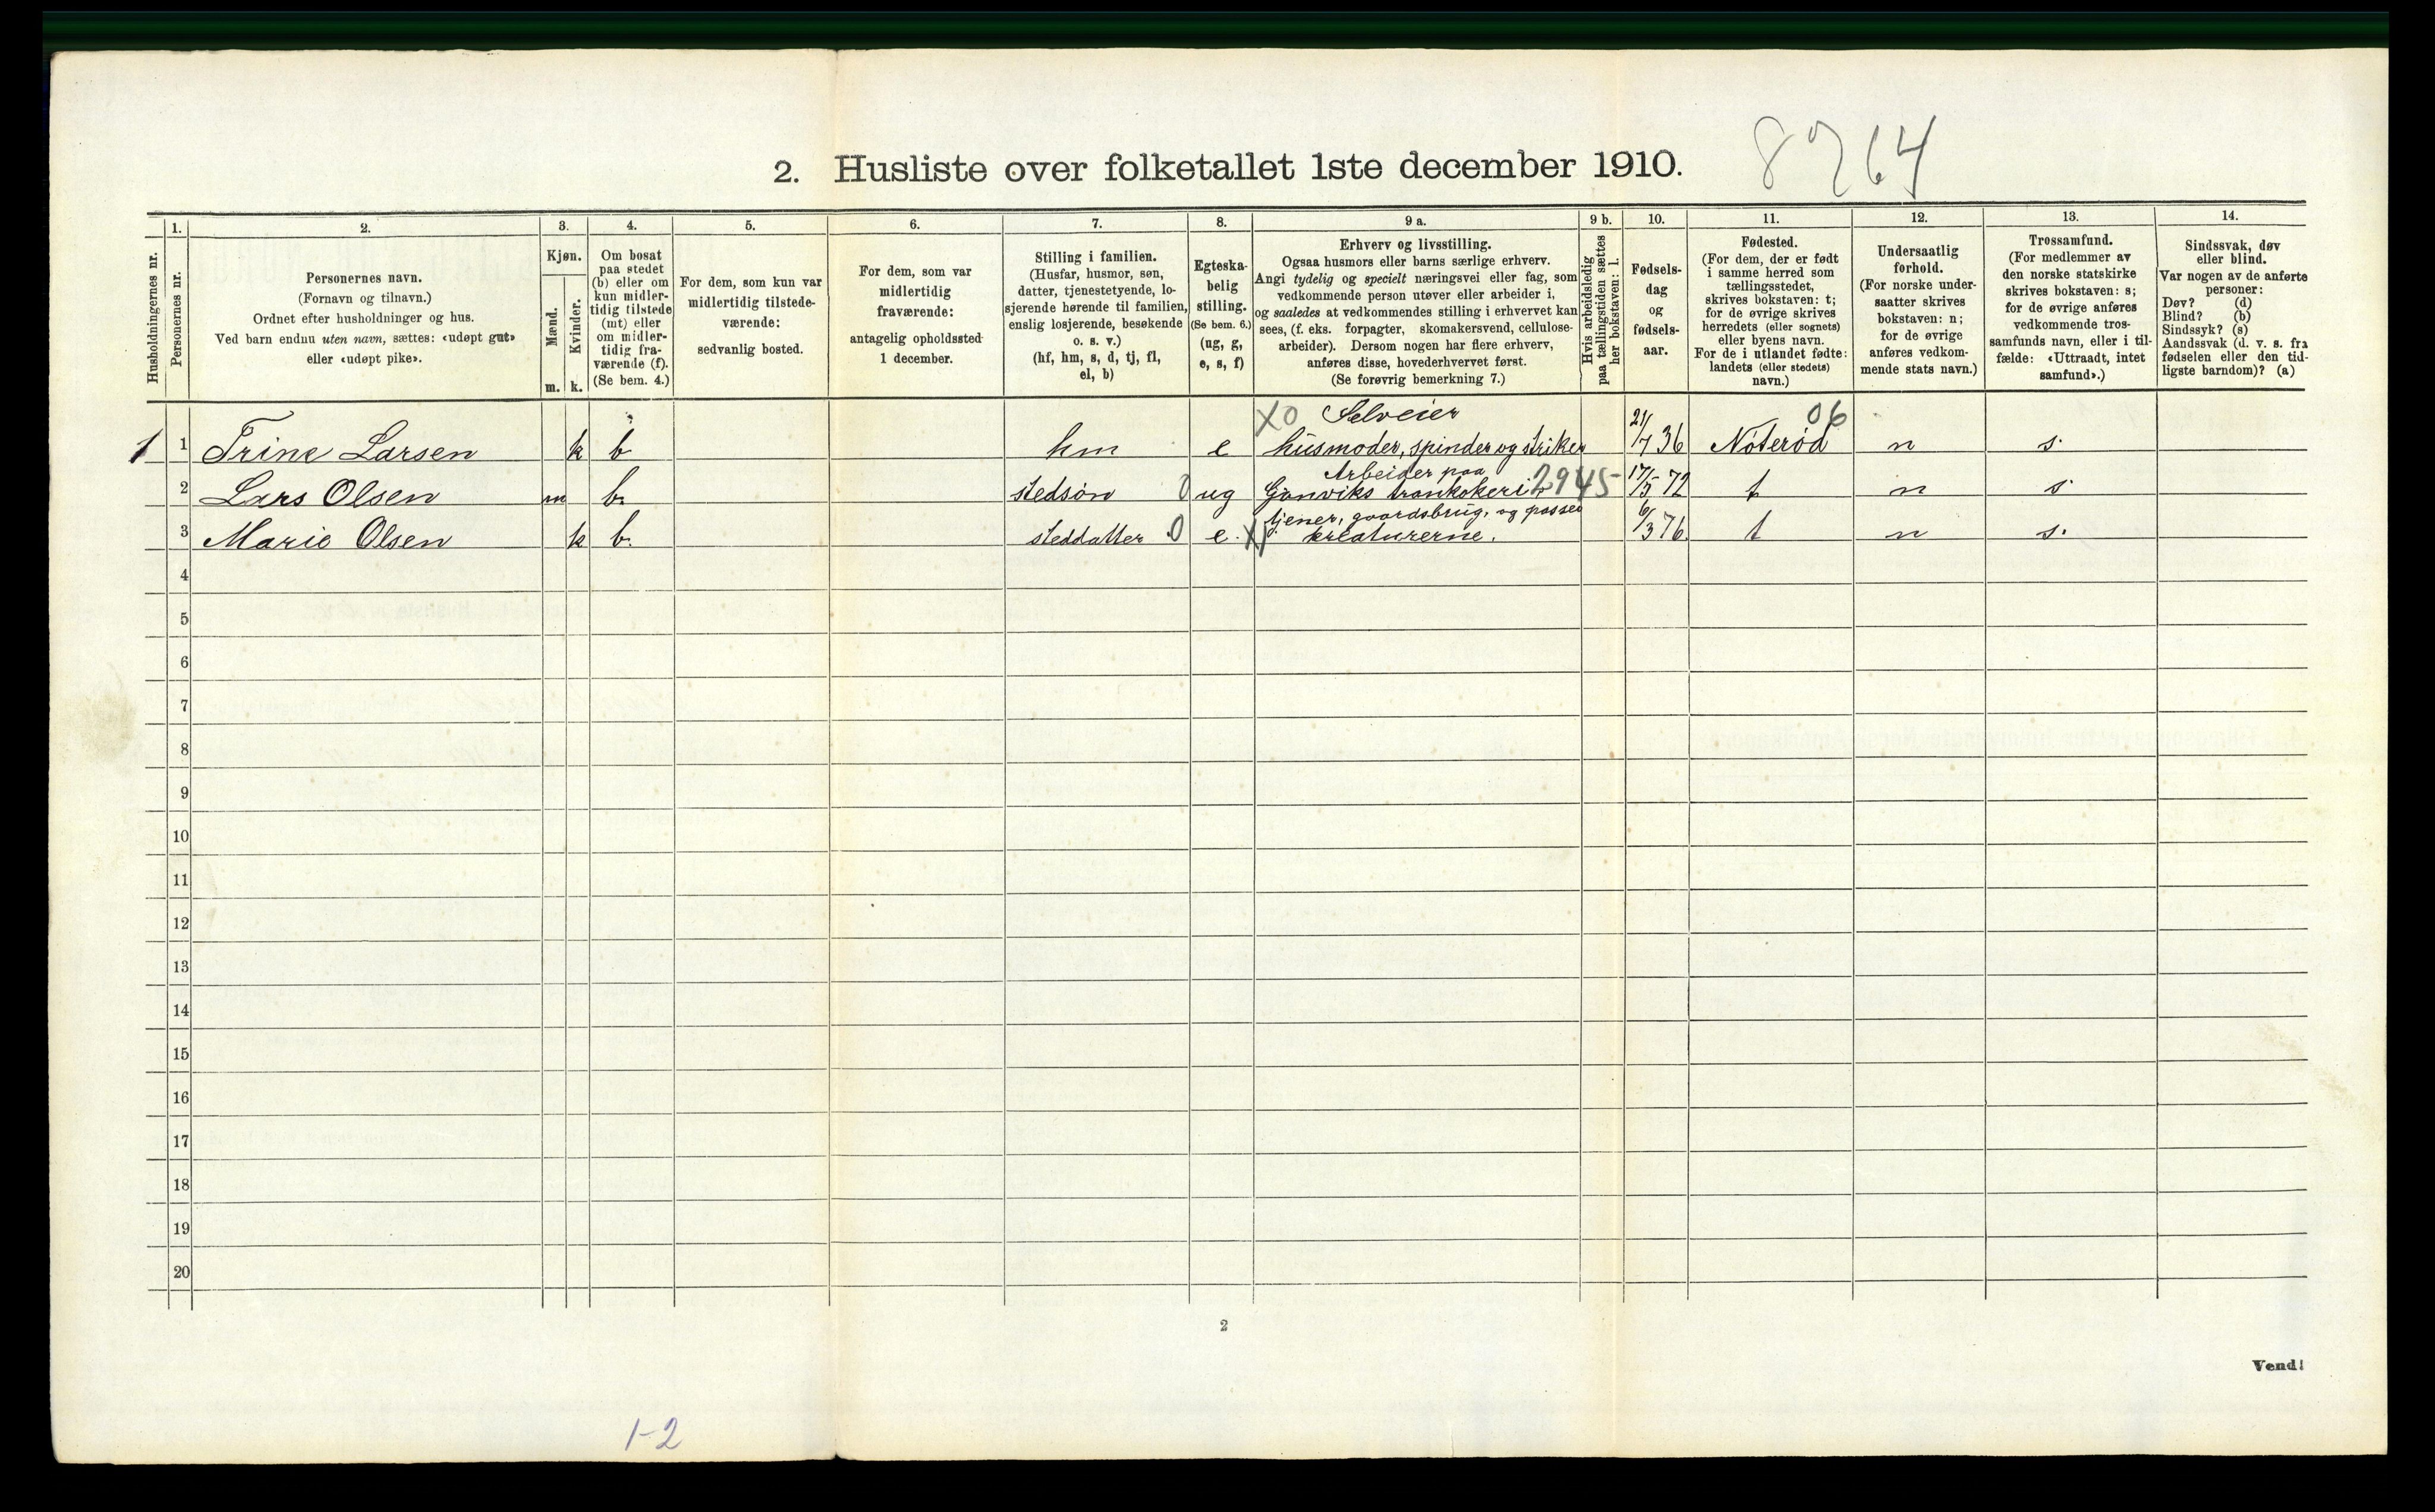 2. Husliste over folketallet 1ste december 1910. 8764
Husholdningernes nr.
1.
Personernes nr.
2.
Personernes navn.
(Fornavn og tilnavn.)
Ordnet efter husholdninger og hus.
Ved barn endnu uten navn, sættes: «udøpt gut»
eller «udøpt pike».
3.
Kjøn.
Mænd.
m.
Kvinder.
k.
4.
Om bosat
paa stedet
(b) eller om
kun midler-
tidig tilstede
(mt) eller
om midler-
tidig fra-
værende (f).
(Se bem. 4.)
5.
For dem, som kun var
midlertidig tilstede-
værende:
sedvanlig bosted.
6.
For dem, som var
midlertidig
fraværende:
antagelig opholdssted
1 december.
7.
Stilling i familien.
(Husfar, husmor, søn,
datter, tjenestetyende, lo-
sjerende hørende til familien,
enslig losjerende, besøkende
o. s. v.)
(hf, hm, s, d, tj, fl,
el, b)
8.
Egteska-
belig
stilling.
(Se bem. 6.)
(ug, g,
e, s, f)
9 a.
Erhverv og livsstilling.
Ogsaa husmors eller barns særlige erhverv.
Angi tydelig og specielt næringsvei eller fag, som
vedkommende person utøver eller arbeider i,
og saaledes at vedkommendes stilling i erhvervet kan
sees, (f. eks. forpagter, skomakersvend, cellulose-
arbeider). Dersom nogen har flere erhverv,
anføres disse, hovederhvervet først.
(Se forøvrig bemerkning 7.)
9 b.
Hvis arbeidsledig
paa tællingstiden sættes
her bokstaven: l.
10.
Fødsels-
dag
og
fødsels-
aar.
11.
Fødested.
(For dem, der er født
i samme herred som
tællingsstedet,
skrives bokstaven: t;
for de øvrige skrives
herredets (eller sognets)
eller byens navn.
For de i utlandet fødte:
landets (eller stedets)
navn.)
12.
Undersaatlig
forhold.
(For norske under-
saatter skrives
bokstaven: n;
for de øvrige
anføres vedkom-
mende stats navn.)
13.
Trossamfund.
(For medlemmer av
den norske statskirke
skrives bokstaven: s;
for de øvrige anføres
vedkommende tros-
samfunds navn, eller i til-
fælde: «Uttraadt, intet
samfund».)
14.
Sindssvak, døv
eller blind.
Var nogen av de anførte
personer:
Døv? (d)
Blind? (b)
Sindssyk? (s)
Aandssvak (d. v. s. fra
fødselen eller den tid-
ligste barndom)? (a)
X0 Selveier 06
1 1 Trine Larsen k b hm e husmoder, spinder og striker 21/7 36 Nøterød n s.
Arbeider paa
2 Lars Olsen m b. stedsøn 0 ug Granviks trankokeri 2945 17/5 72 t n s
tjener, gaardsbrug, og passer
3 Marie Olsen k b. steddatter 0 e. X kreaturerne. 6/3 76. t n s.
4
5
6
7
8
9
10
11
12
13
14
15
16
17
18
19
20
2
Vend!
1-2